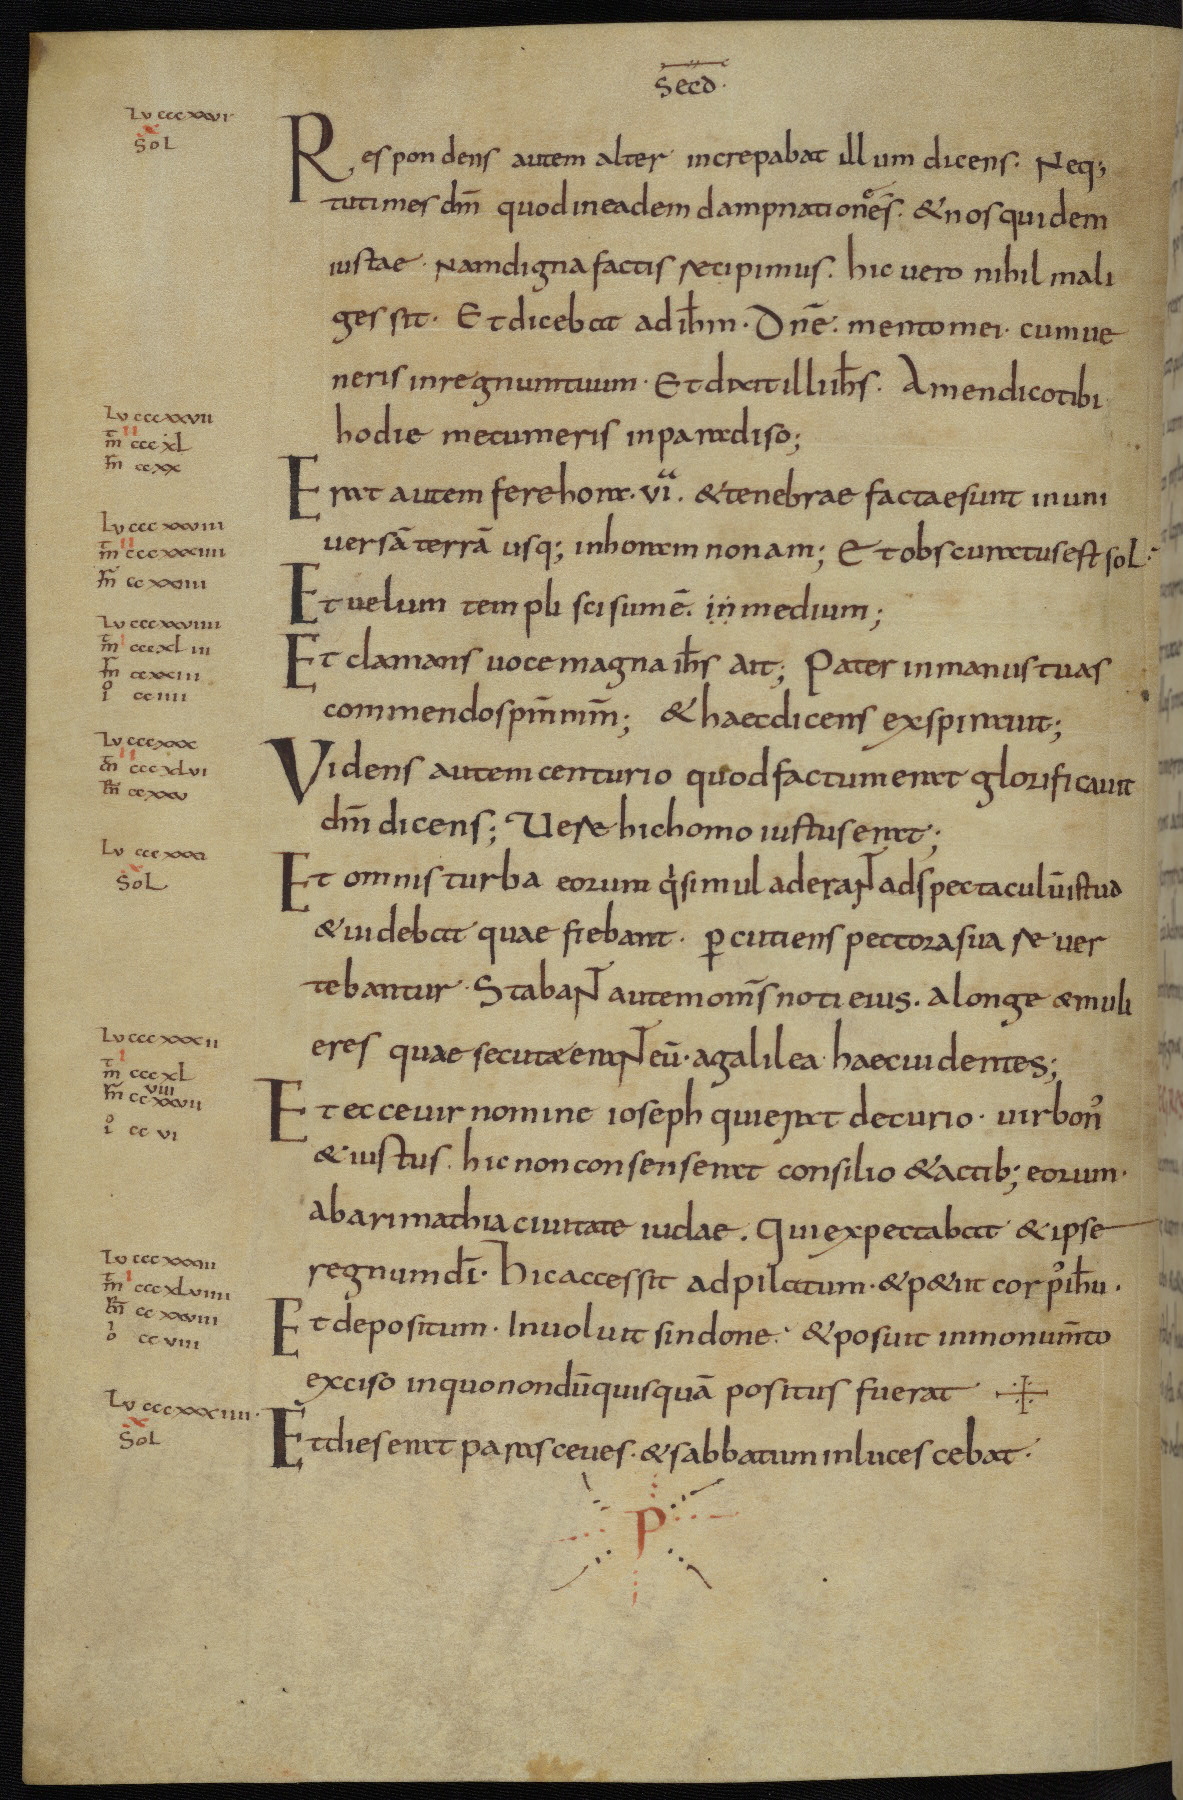 Secd̅·
Lv cccxxvi
x
Sol
Respondens autem alter increpabat illum dicens. Neq;
tu times dm̅ quod in eadem dampnatione es̅. & nos quidem
iustae. Nam digna factis recipimus. hic uero nihil mali
gessit. Et dicebat ad ih̅m. Dn̅e. mento mei. cum ue
neris in regnum tuum. Et dixit illi ih̅s. Amen dico tibi
hodie mecum eris in paradiso;
Lv cccxxvii
m̅ cccxl
m̅ ccxx
Erat autem fere hora. vi. & tenebrae factae sunt in uni
uersa̅ terra̅ usq; in horam nonam; Et obscuratus est sol.
Lv cccxxviii
m̅ cccxxxiiii
m̅ ccxxiiii
Et uelum templi scisum e̅. in medium;
Lv cccxxviiii
m̅ cccxliii
m̅ ccxxiii
io cciiii
Et clamans uoce magna ih̅s ait; Pater in manus tuas
commendo spm̅ mm̅; & haec dicens exspirauit;
Lv cccxxx
m̅ cccxlvi
m̅ ccxxv
Videns autem centurio quod factum erat glorificauit
dm̅ dicens; Uere hic homo iustus erat;
Lv cccxxxi
x
Sol
Et omnis turba eorum qui simul aderant ad spectaculu̅ istud
& uidebat quae fiebant. p̱cutiens pectora sua reuer
tebantur. Stabant autem om̅s noti eius. a longe & muli
eres quae secutae erant eu̅. a galilea haec uidentes;
Lv cccxxxii
m̅ cccxl
viii
m̅ ccxxvii
io ccvi
Et ecce uir nomine ioseph qui erat decurio. uir bon᾽
& iustus. hic non consenserat consilio & actib; eorum.
ab arimathia ciuitate iudae. Qui expectabat & ipse
regnum di̅. Hic accessit ad pilatum. & p&iit corp᾽ ih̅u.
Lv cccxxxiii
m̅ cccxlviiii
m̅ ccxxviii
io ccviii
Et depositum. Inuoluit sindone. & posuit in monum̅to
exciso in quo nondu̅ quisqua̅ positus fuerat
Lv cccxxxiiii.
x
Sol
Et dies erat parasceues. & sabbatum inlucescebat.
P